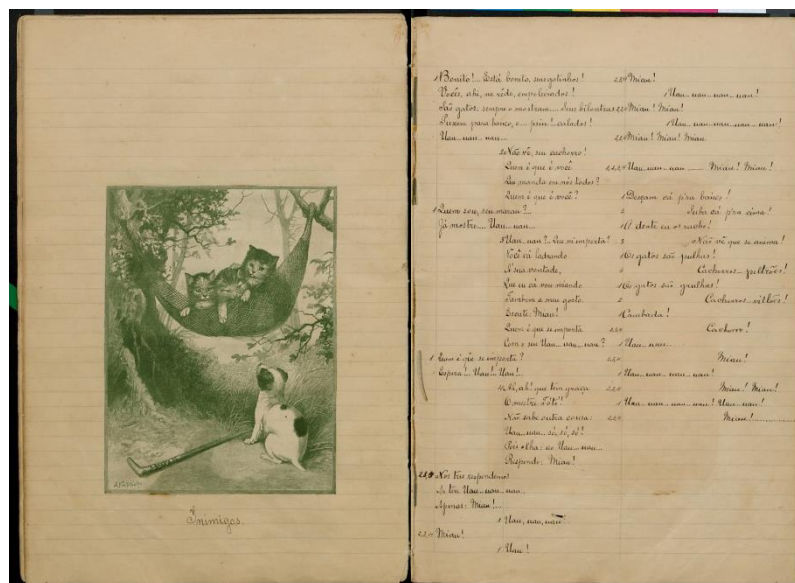 Inimigos.
1 Bonito!... Está bonito, seus gatinhos!
Vocês, ahi, na rêde, empoleirados!
São gatos: sempre o mostram... Seus bilontras
Puxem para baixo, e... psiu! calados!
Uau... uau... uau...
2 Não vê, seu cachorro!
Quem é que é você
Que manda em nós todos?
Quem é que é você?
1 Quem sou, seu miau?...
Já mostro... Uau... uau...
3 Uau... uau?... Que m'importa?
Você vá ladrando
Á sua vontade,
Que eu cá vou miando
Tambem a meu gosto.
Escute: Miau!
Quem é que se importa
Com o seu Uau... uau... uau?
1 Quem é que se importa?
Espera!... Uau! Uau!...
4 Ah, ah! que tem graça
O mestre Tótó!
Não sabe outra cousa:
Uau... uau... só, só, só!
Pois olha: ao Uau... uau...
Respondo: Miau!
2,3,4 Nós tres respondemos
Ao teu Uau... uau... uau,
Apenas: Miau!...
1 Uau, uau, uau!
2,3,4 Miau!
1 Uau!
2,3,4 Miau!
1 Uau... uau... uau... uau!
2,3,4 Miau! Miau!
1 Uau... uau... uau... uau... uau!
2,3,4 Miau! Miau! Miau
1,2,3,4 Uau... uau... uau... Miau! Miau!
1 Desçam cá p'ra baixo!
2 Suba cá p'ra cima!
1 O dente eu os racho!
3 Não vê que se anima!
1 Os gatos são pulhas!
4 Cachorros... poltrões!
1 Os gatos são grulhas!
2 Cachorros... vilões!
1 Cambada!
2,3,4 Cachorro!
1 Uau... uau...
2,3,4 Miau!
1 Uau... uau... uau... uau!
2,3,4 Miau! Miau!
1 Uau... uau... uau... uau! Uau... uau!
2,3,4 Miau!